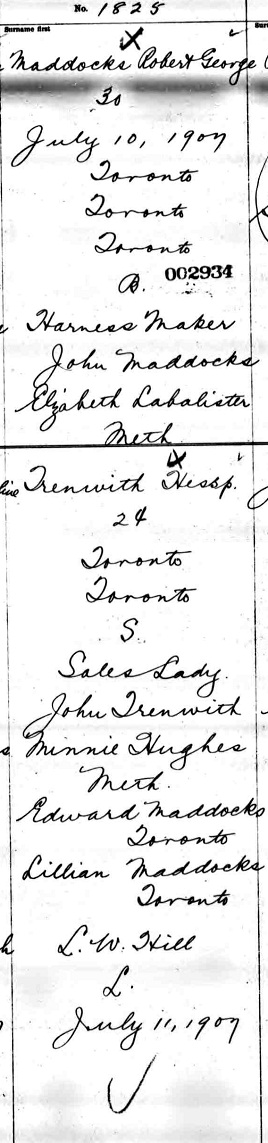 No. 1825
Surname first
Maddocks Robert George
30
July 10, 1907
Toronto
Toronto
Toronto
B.
002934
Harness Maker
John Maddocks
Elizabeth Labalister
Meth
Trenwith Hessp.
24
Toronto
Toronto
S.
Sales Lady.
John Trenwith
Minnie Hughes
Meth.
Edward Maddocks
Toronto
Lillian Maddocks
Toronto
L. W. Hill
L.
July 11, 1907